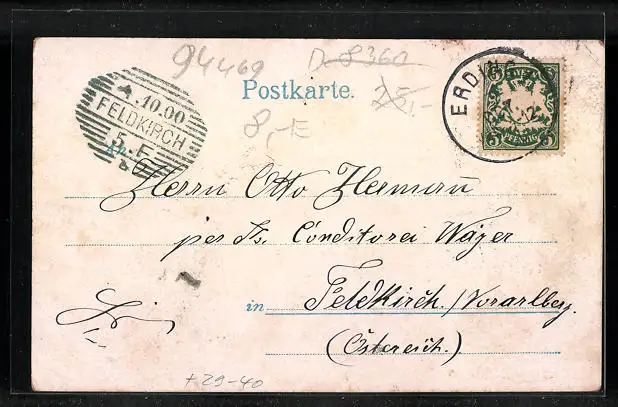 94469
D-8360
Postkarte.
25,-
8,-E
10.00
FELDKIRCH
5
ERDING
5 5
PFENNIG
Herrn Otto Hermann
per Fs. Conditorei Wäger
in Feldkirch. / Vorarlberg.
(Österreich.)
+29-40